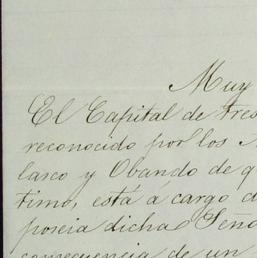 Muy
El Capital de tres
reconocido por los
lasco y Obando de q
timo, está á cargo d
poseia dicha Seño
consecuencia de un